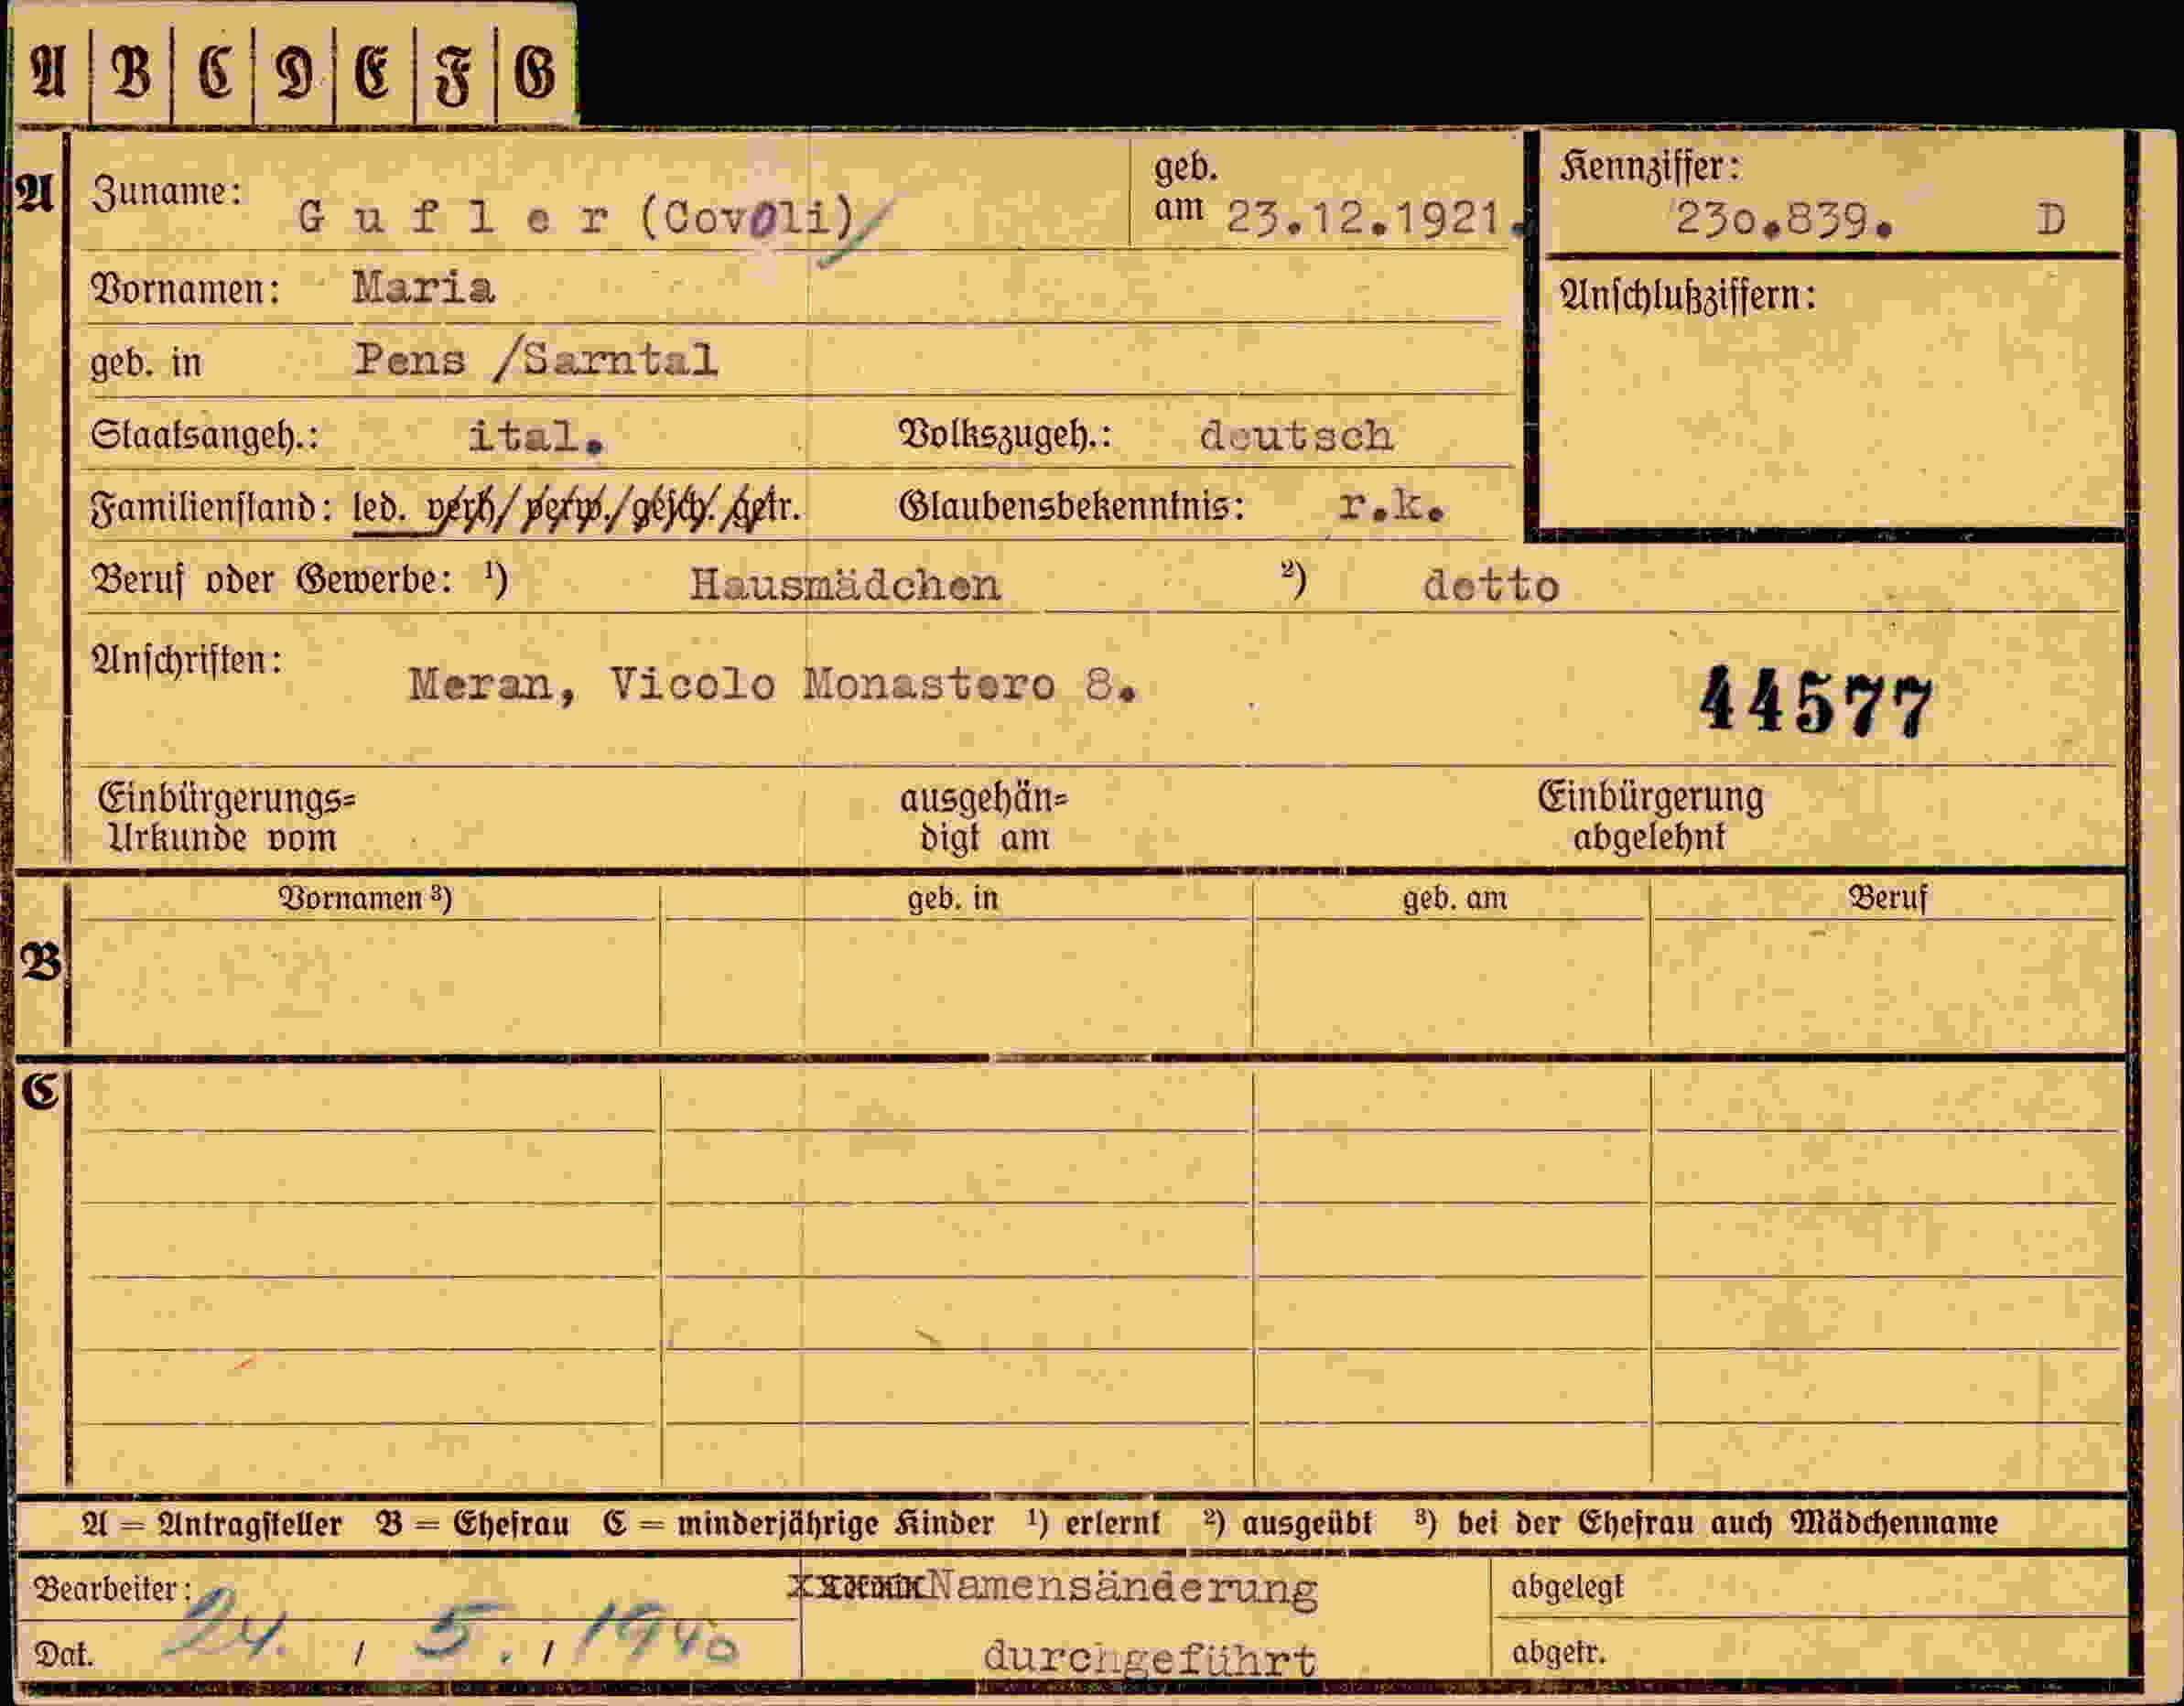 A | B | C | D | E | F | G
A
Zuname: Gufler (Covoli)
geb. am 23.12.1921.
Kennziffer: 230.839. D
Vornamen: Maria
Anschlußziffern:
geb. in Pens /Sarntal
Staatsangeh.: ital. Volkszugeh.: deutsch
Familienstand: led. verh/ verw./gesch./getr. Glaubensbekenntnis: r.k.
Beruf oder Gewerbe: ¹) Hausmädchen ²) detto
Anschriften: Meran, Vicolo Monastero 8.
44577
Einbürgerungs= ausgehän= Einbürgerung
Urkunde vom digt am abgelehnt
Vornamen ³) geb. in geb. am Beruf
B
C
A = Antragsteller B = Ehefrau C = minderjährige Kinder ¹) erlernt ²) ausgeübt ³) bei der Ehefrau auch Mädchenname
Bearbeiter: Namensänderung abgelegt
Dat. 24. / 5. / 1940 durchgeführt abgetr.